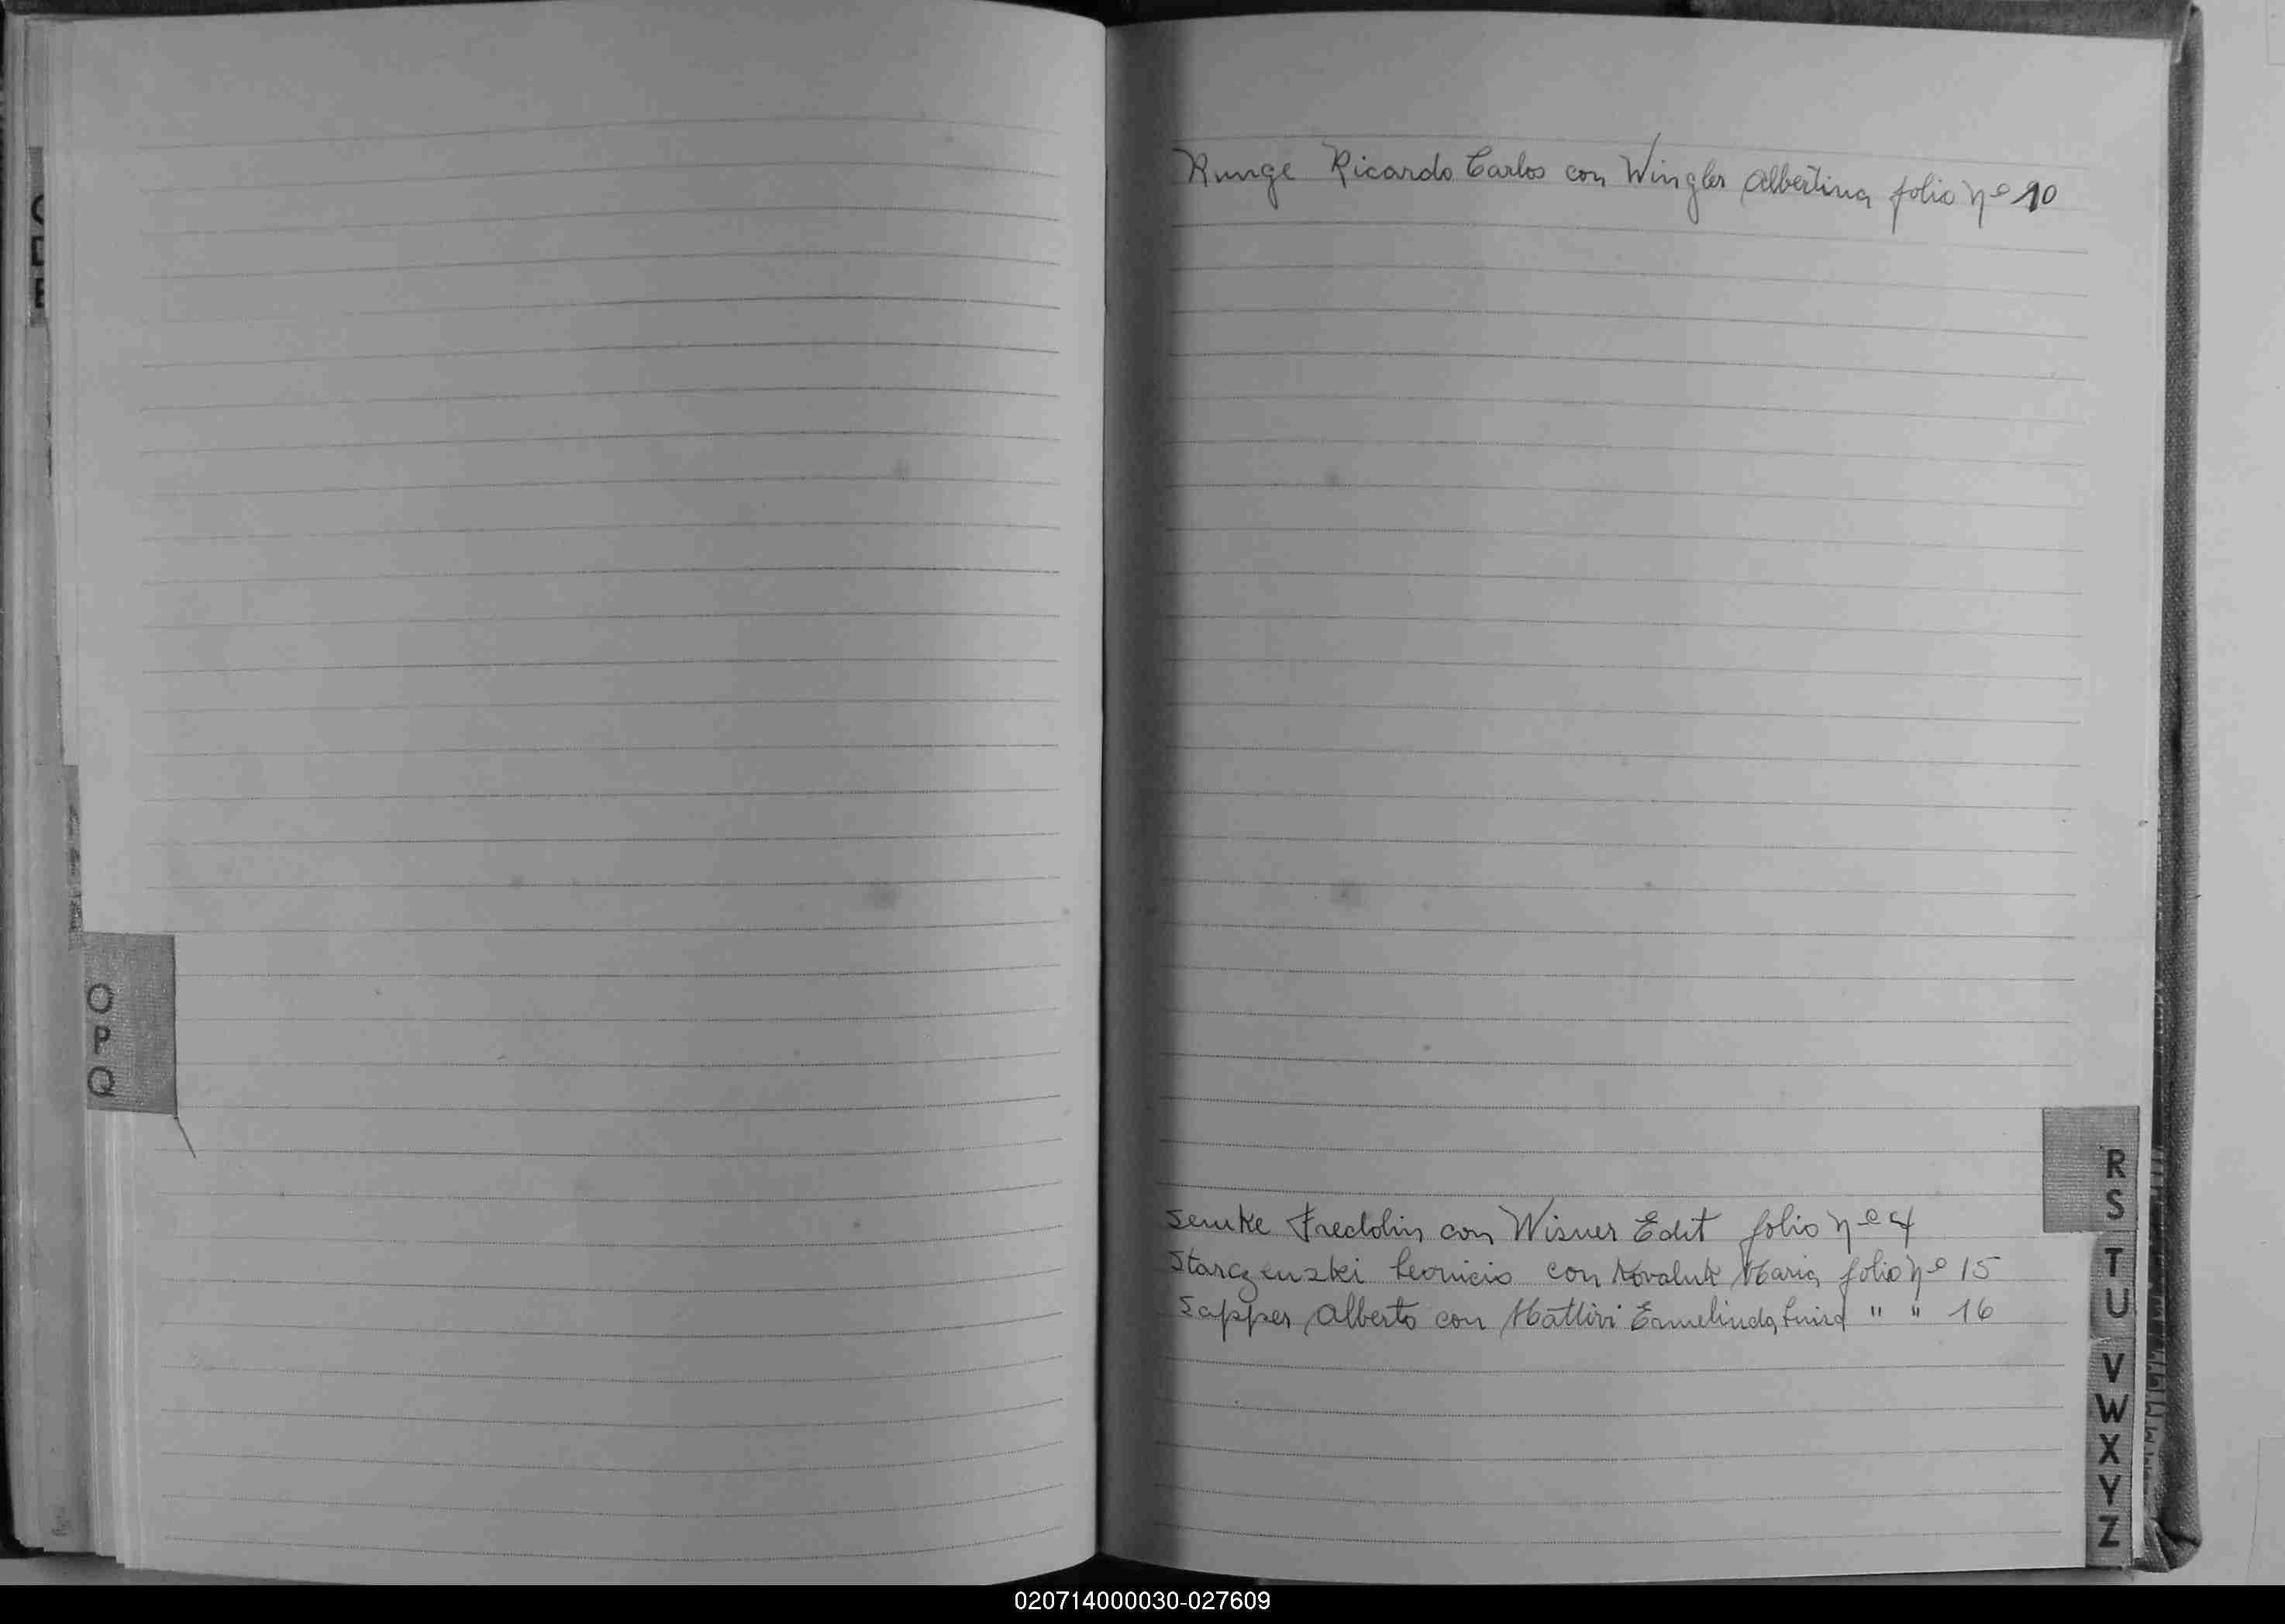 O
P
Q
Runge Ricardo Carlos con Wingler Albertina folio nº 10
Semke Fredolin con Wisner Edit folio nº 4
Starczenski Leonicio con Kovaluk Maria folio nº 15
Sapper Alberto con Mattivi Ermelinda Luisa " " 16
R
S
T
U
V
W
X
Y
Z
020714000030-027609